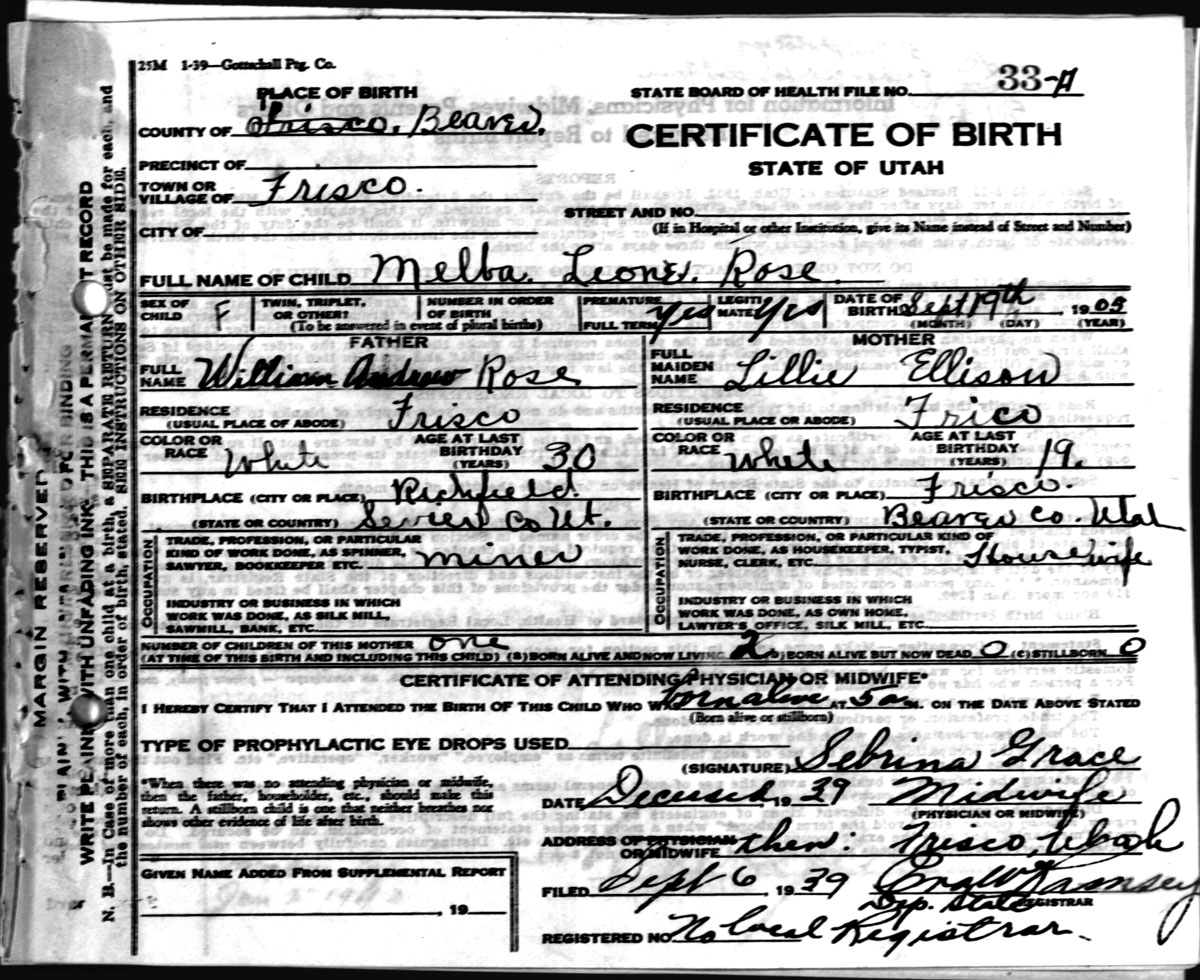 25M 1-39—Gottschall Ptg. Co.
33-A
STATE BOARD OF HEALTH FILE NO.
PLACE OF BIRTH
COUNTY OF Frisco, Beaver.
CERTIFICATE OF BIRTH
STATE OF UTAH
PRECINCT OF
TOWN OR VILLAGE OF Frisco.
STREET AND NO.
(If in Hospital or other Institution, give its Name instead of Street and Number)
CITY OF
FULL NAME OF CHILD Melba. Leone. Rose.
SEX OF CHILD F TWIN, TRIPLET, OR OTHER? NUMBER IN ORDER OF BIRTH (To be answered in event of plural births) PREMATURE FULL TERM yes LEGITIMATE yes DATE OF BIRTH Sept 19th 1905 (MONTH) (DAY) (YEAR)
FATHER
FULL NAME William Andrew Rose
RESIDENCE (USUAL PLACE OF ABODE) Frisco
COLOR OR RACE White AGE AT LAST BIRTHDAY (YEARS) 30
BIRTHPLACE (CITY OR PLACE) Richfield
(STATE OR COUNTRY) Sevier Co Ut.
OCCUPATION
TRADE, PROFESSION, OR PARTICULAR KIND OF WORK DONE, AS SPINNER, SAWYER, BOOKKEEPER ETC. miner
INDUSTRY OR BUSINESS IN WHICH WORK WAS DONE, AS SILK MILL, SAWMILL, BANK, ETC.
MOTHER
FULL MAIDEN NAME Lillie Ellison
RESIDENCE (USUAL PLACE OR ABODE) Frico
COLOR OR RACE White AGE AT LAST BIRTHDAY (YEARS) 19.
BIRTHPLACE (CITY OR PLACE) Frisco.
(STATE OR COUNTRY) Beaver Co. Utah
OCCUPATION
TRADE, PROFESSION, OR PARTICULAR KIND OF WORK DONE, AS HOUSEKEEPER, TYPIST, NURSE, CLERK, ETC. Housewife
INDUSTRY OR BUSINESS IN WHICH WORK WAS DONE, AS OWN HOME, LAWYER'S OFFICE, SILK MILL, ETC.
NUMBER OF CHILDREN OF THIS MOTHER one
(AT TIME OF THIS BIRTH AND INCLUDING THIS CHILD) (A) BORN ALIVE AND NOW LIVING 2 (B) BORN ALIVE BUT NOW DEAD 0 (C) STILLBORN 0
CERTIFICATE OF ATTENDING PHYSICIAN OR MIDWIFE*
I HEREBY CERTIFY THAT I ATTENDED THE BIRTH OF THIS CHILD WHO WAS born alive AT 5 a M. ON THE DATE ABOVE STATED
(Born alive or stillborn)
TYPE OF PROPHYLACTIC EYE DROPS USED
(SIGNATURE) Sebrina Grace
*When there was no attending physician or midwife, then the father, householder, etc., should make this return. A stillborn child is one that neither breathes nor shows other evidence of life after birth.
DATE Deceased 1939 Midwife
(PHYSICIAN OR MIDWIFE)
ADDRESS OF PHYSICIAN OR MIDWIFE then: Frisco, Utah
GIVEN NAME ADDED FROM SUPPLEMENTAL REPORT
, 19
FILED Sept 6 1939 Ramsey
Dep. State REGISTRAR
REGISTERED NO. No Local Registrar.
MARGIN RESERVED FOR BINDING
WRITE PLAINLY WITH UNFADING INK—THIS IS A PERMANENT RECORD
N. B.—In Case of more than one child at a birth, a SEPARATE RETURN must be made for each, and the number of each, in order of birth, stated. SEE INSTRUCTIONS ON OTHER SIDE.